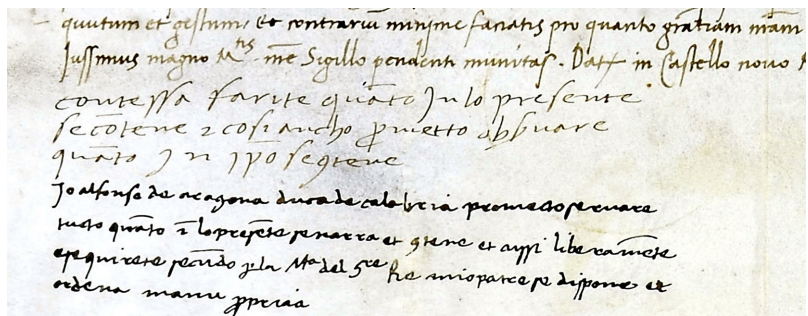 quutum et gestum, Et contrariū minime faciatis pro quanto grãtiam nr̃am
Jussimus magno M.tis nr̃e Sigillo pendenti munitas. Datt in Castello novo
contessa farite quãto Jn lo presente
se cõtene & cosi ancho ꝓmetto obbꝰuare
quãto Jn ip̃o se ꝯtene
Jo alfonso de aragona duca de calabria promecto servare
tucto quãto ĩ lo presẽte se narra et ꝯtene et assi liberamẽte
exequirete secũdo ꝑ la Mta del Sre Re mio patre se dispone et
ordena manu ꝓpria